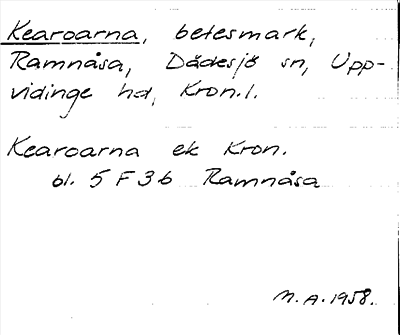 Kearoarna, betesmark,
Ramnåsa, Dädesjö sn, Upp-
vidinge hd, Kron.l.
Kearoarna ek Kron.
bl. 5 F 3 b Ramnåsa
M.A. 1958.